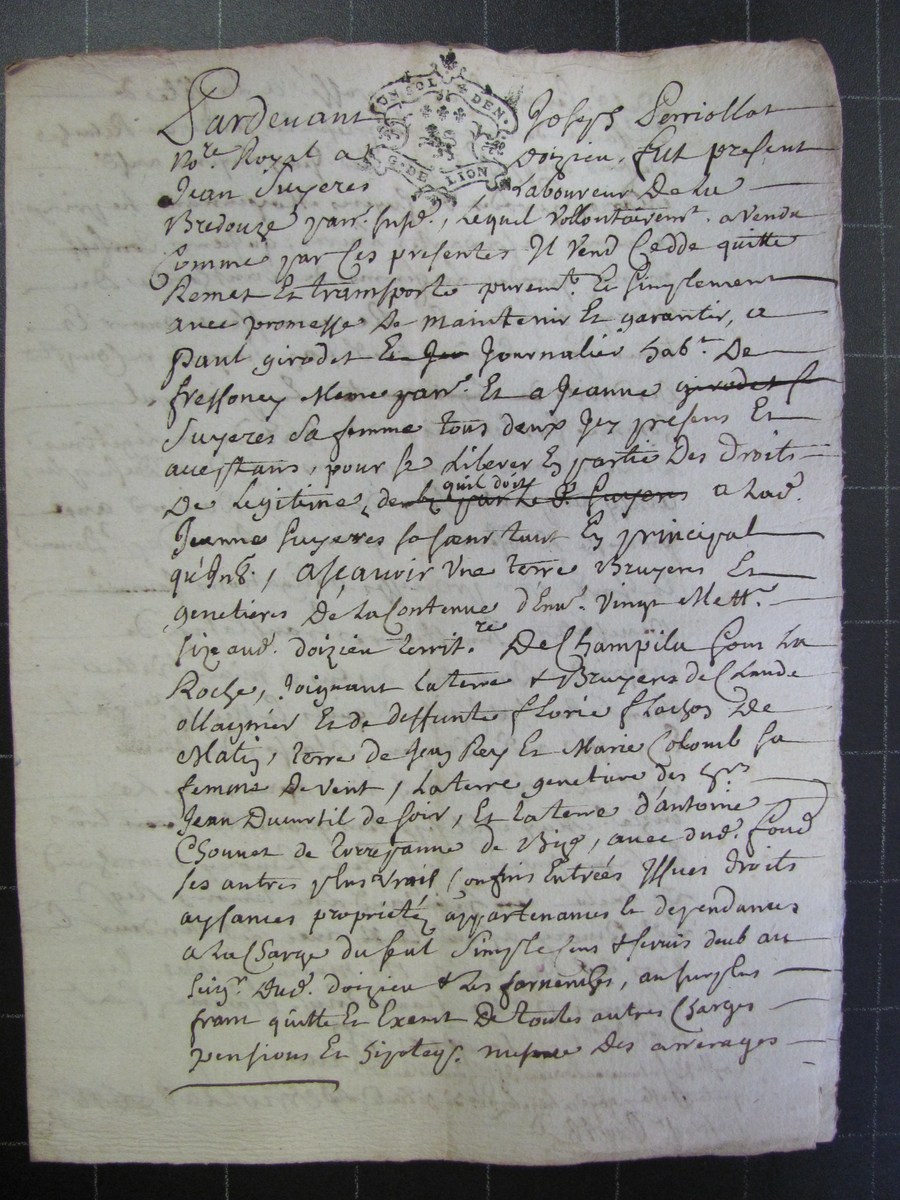 UN SOL DEN.
G. DE LION
Pardevant Joseph Perriollat
No.re Royal a Doizieu, fut present
Jean Suyeres Laboureur De La
Bredouze parr. susd., Lequel vollontairemt. a vendu
Comme par Ces presentes Il vend Cedde quitte
Remet Et transporte puremt. Et simplement
avec promesse De maintenir Et garantir, a
Paul girodet Et Jea Journalier hab.t De
fressoney Meme parr. Et a Jeanne girodet sa
Suyeres sa femme tous deux Icy presens Et
acceptans, pour se Liberer En partie Des Droits
De Legitime, de quil doit par Le d. Suyeres a Lad.
Jeanne Suyeres sa soeur tant En principal
qu'Int., ascavoir Une terre Bruyeres Et
genetieres De La Contenue d'Env. vingt Mett.
size aud. doizieu territ.re De Champilu sous La
Roche, Joignant La terre & Bruyeres de Claude
ollagnier Et de deffunte florie flachos De
Matin, terre de Jean Rey Et Marie Colomb sa
femme De vent, La terre genetiere des hrs
Jean Ducurtil de soir, Et La terre d'antoine
Chonnet de de Bize, avec dud. fond
ses autres plus vrais Confins Entrées Issues droits
aysances proprietés appartenances & dependances
a La Charge du seul simple sens & servis deub au
seigr. dud. doizieu & Les, au surplus
franc quitte Et Exempt De toutes autres Charges
pensions Et hipoteqs. mesme des arrerages